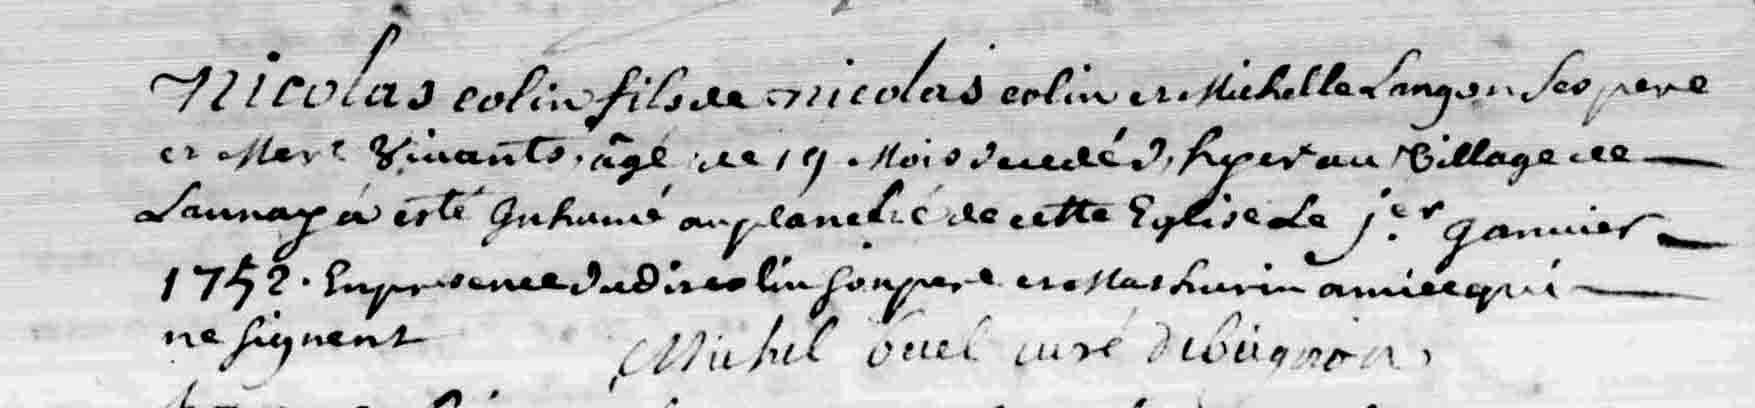 Nicolas colin fils de nicolas colin et Michelle Langon Ses pere
et Mere Vivants, âgé de 19 Mois décédé hyer au Village de
Launay à esté Inhumé au de cette Eglise Le j.er Janvier
1752. En presence dudit colin Son pere et Mathurin amice qui
ne signent Michel curé